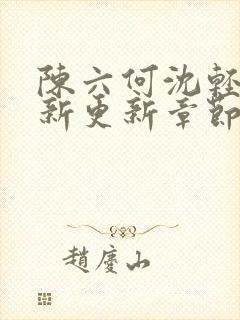 陳六何沈輕
新更新章節
趙慶山